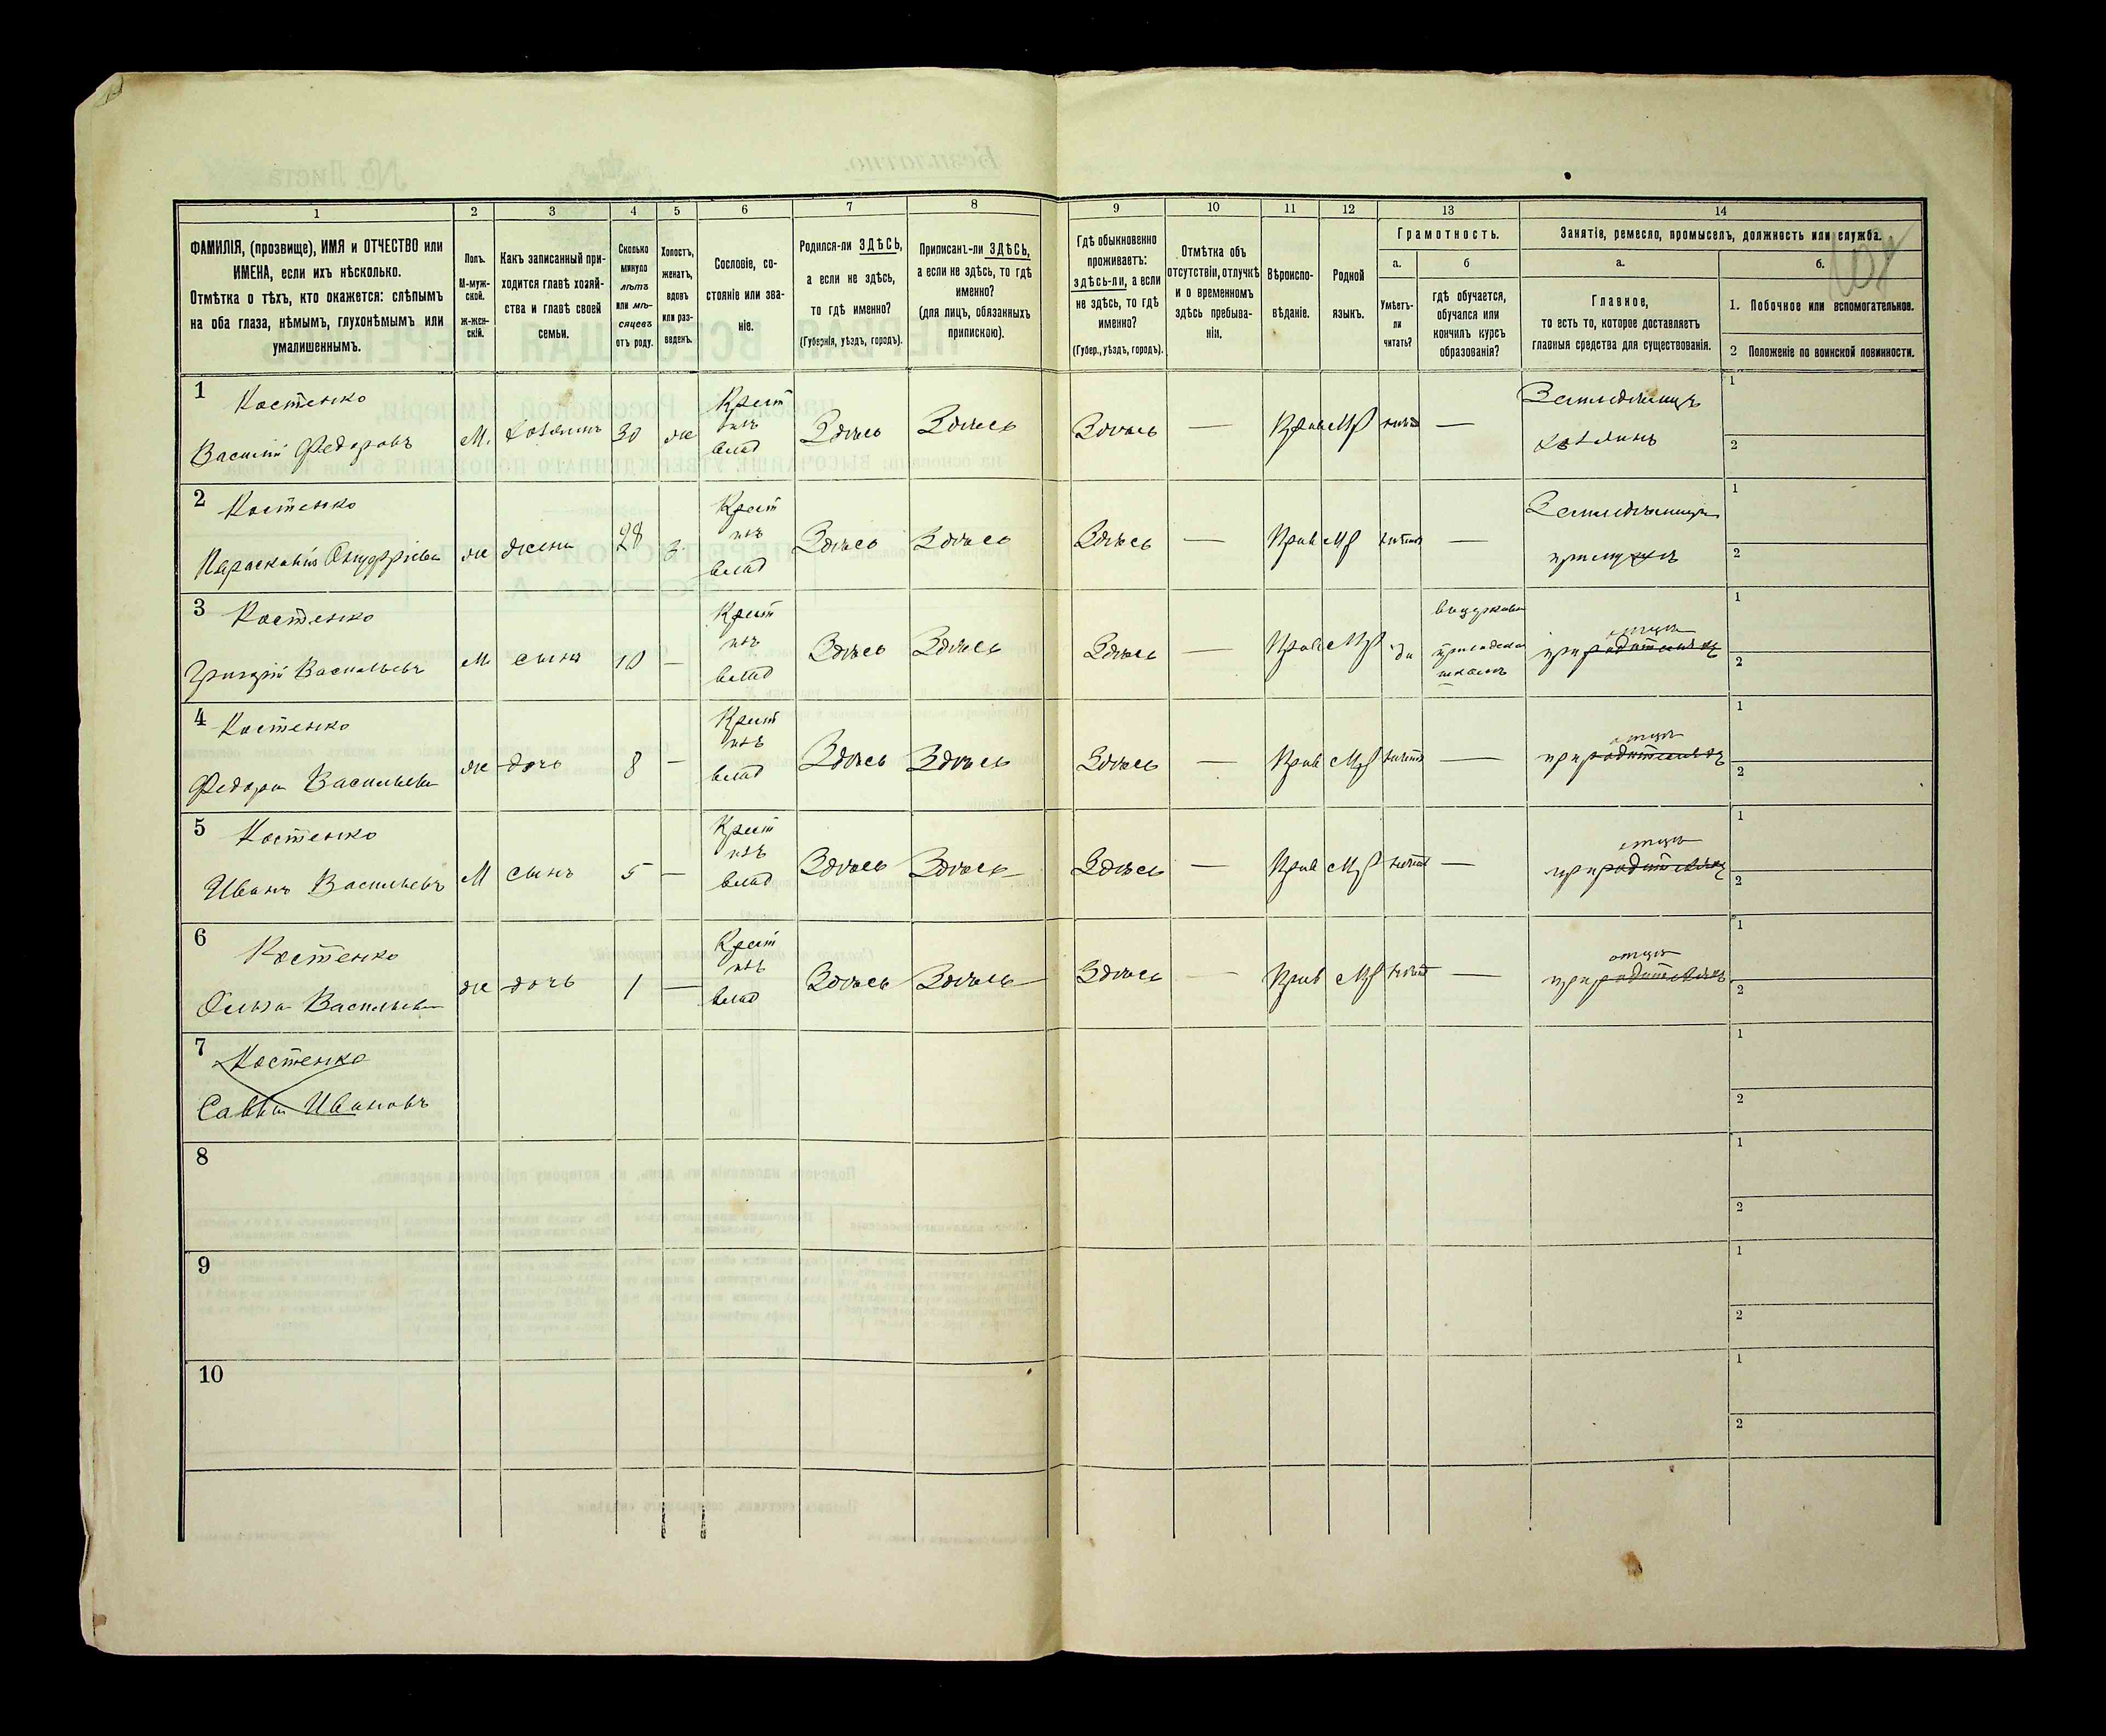 1 2 3 4 5 6 7 8 9 10 11 12 13 14
ФАМИЛІЯ, (прозвище), ИМЯ и ОТЧЕСТВО или
ИМЕНА, если ихъ нѣсколько.
Отмѣтка о тѣхъ, кто окажется: слѣпымъ
на оба глаза, нѣмымъ, глухонѣмымъ или
умалишеннымъ.
Полъ.
М-муж-
ской.
Ж-жен-
скій.
Какъ записанный при-
ходится главѣ хозяй-
ства и главѣ своей
семьи.
Сколько
минуло
лѣтъ
или мѣ-
сяцевъ
отъ роду.
Холостъ,
женатъ,
вдовъ
или раз-
веденъ.
Сословіе, со-
стояніе или зва-
ніе.
Родился-ли ЗДѢСЬ,
а если не здѣсь,
то гдѣ именно?
(Губернія, уѣздъ, городъ).
Приписанъ-ли ЗДѢСЬ,
а если не здѣсь, то гдѣ
именно?
(для лицъ, обязанныхъ
припискою).
Гдѣ обыкновенно
проживаетъ:
здѣсь-ли, а если
не здѣсь, то гдѣ
именно?
(Губер., уѣздъ, городъ).
Отмѣтка объ
отсутствіи, отлучкѣ
и о временномъ
здѣсь пребыва-
ніи.
Вѣроиспо-
вѣданіе.
Родной
языкъ.
Грамотность.
а.
Умѣетъ-
ли
читать?
б
гдѣ обучается,
обучался или
кончилъ курсъ
образованія?
Занятіе, ремесло, промыселъ, должность или служба.
а.
Главное,
то есть то, которое доставляетъ
главныя средства для существованія.
б.
1. Побочное или вспомогательное.
2 Положеніе по воинской повинности.
1 Костенко
Василій Федоровъ
М. хозяинъ 30 ж
Крест
изъ
влад
Здѣсь Здѣсь Здѣсь — Прав Мр нѣтъ —
Земледѣлецъ
хозяинъ
1
2
2 Костенко
Параскавія Онуфріева
ж жена 28 з
Крест
изъ
влад
Здѣсь Здѣсь Здѣсь — Прав Мр нѣтъ —
Земледѣлица
при мужѣ
1
2
3 Костенко
Григорій Васильевъ
М сынъ 10 —
Крест
изъ
влад
Здѣсь Здѣсь Здѣсь — Прав Мр да
школѣ
отцѣ
при родителяхъ
1
2
4 Костенко
Федора Васильева
ж дочь 8 —
Крест
изъ
влад
Здѣсь Здѣсь Здѣсь — Прав Мр нѣтъ —
отцѣ
при родителяхъ
1
2
5 Костенко
Иванъ Васильевъ
М сынъ 5 —
Крест
изъ
влад
Здѣсь Здѣсь Здѣсь — Прав Мр нѣтъ —
отцѣ
при родителяхъ
1
2
6 Костенко
Ольга Васильева
ж дочь 1 —
Крест
изъ
влад
Здѣсь Здѣсь Здѣсь — Прав Мр нѣтъ —
отцѣ
при родителяхъ
1
2
7 Костенко
Савва Ивановъ
1
2
8
1
2
9
1
2
10
1
2